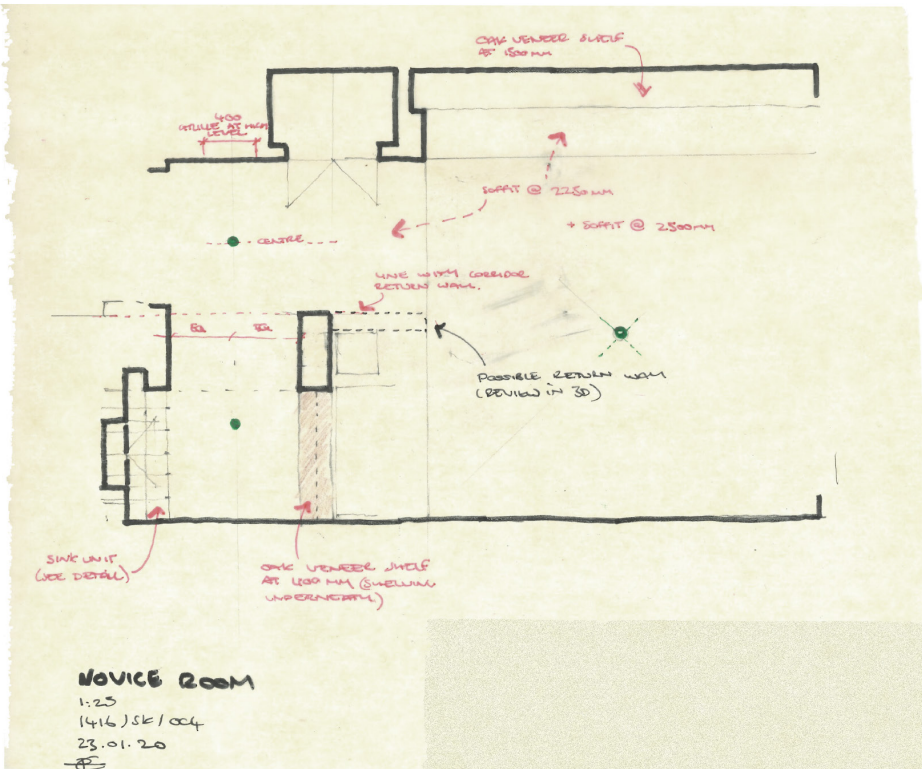 OAK VENEER SHELF
AT 1500MM
400
GRILLE AT HIGH
LEVEL
SOFFIT @ 2250MM
* SOFFIT @ 2500MM
CENTRE
LINE WITH CORRIDOR
RETURN WALL.
EQ EQ
POSSIBLE RETURN WALL
(REVIEW IN 3D)
SINK UNIT
(SEE DETAIL)
OAK VENEER SHELF
AT 1200 MM (SHELVING
UNDERNEATH.)
NOVICE ROOM
1:25
1416/SK/004
23.01.20